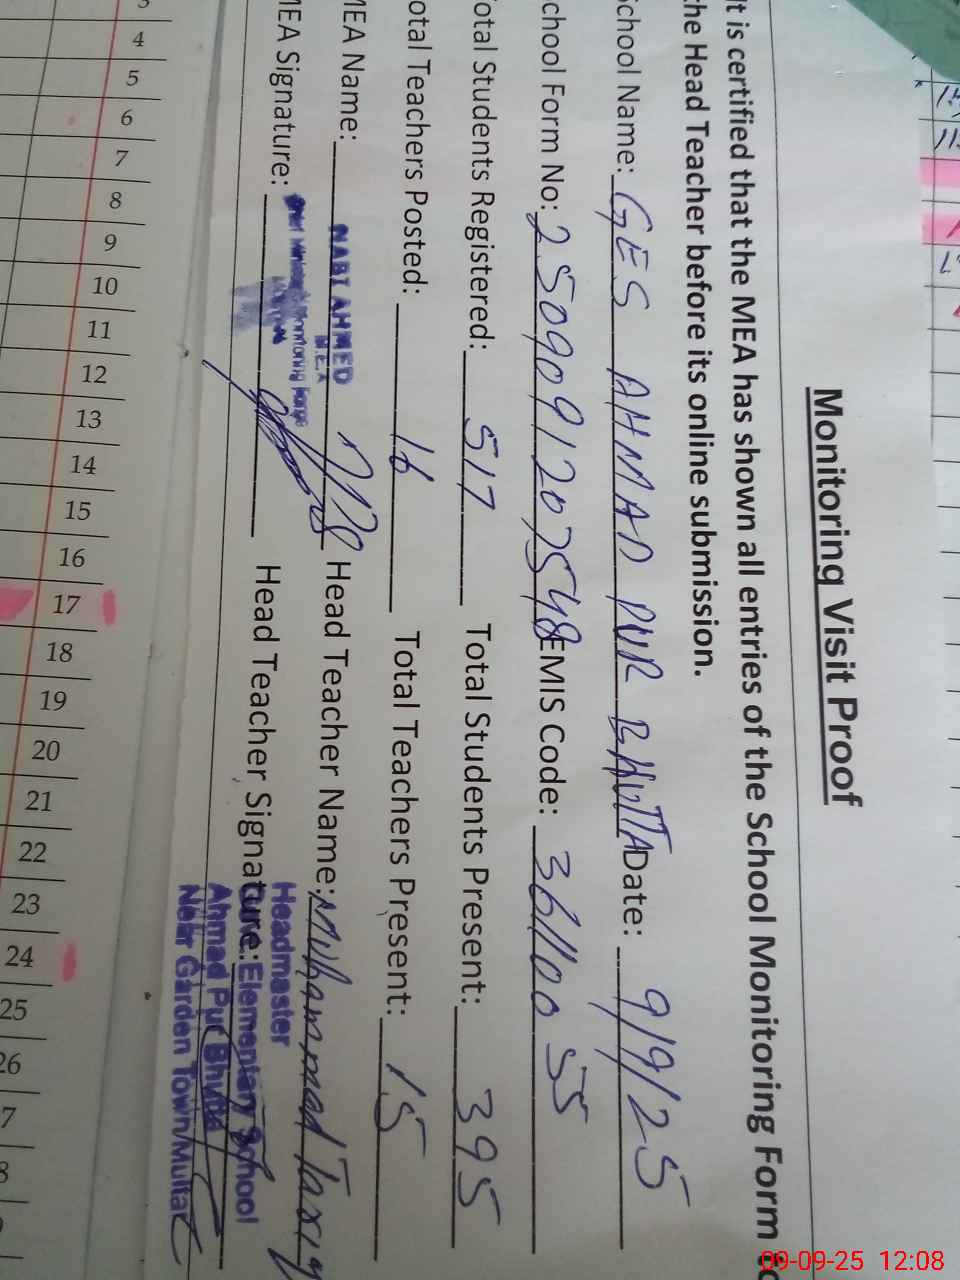 Monitoring Visit Proof
It is certified that the MEA has shown all entries of the School Monitoring Form to
the Head Teacher before its online submission.
School Name: GES AHMAD PUR BHUTTA Date: 9/9/25
School Form No: 2509091207548 EMIS Code: 36110055
Total Students Registered: 517 Total Students Present: 395
Total Teachers Posted: 16 Total Teachers Present: 15
MEA Name: NABI AHMED Head Teacher Name: Muhammad Tariq
M.E.A
MEA Signature: Head Teacher Signature:
Chief Minister's Monitoring Force
Headmaster
Elementary School
Ahmad Pur Bhutta
Near Garden Town Multan
4
5
6
7
8
9
10
11
12
13
14
15
16
17
18
19
20
21
22
23
24
25
26
09-09-25 12:08